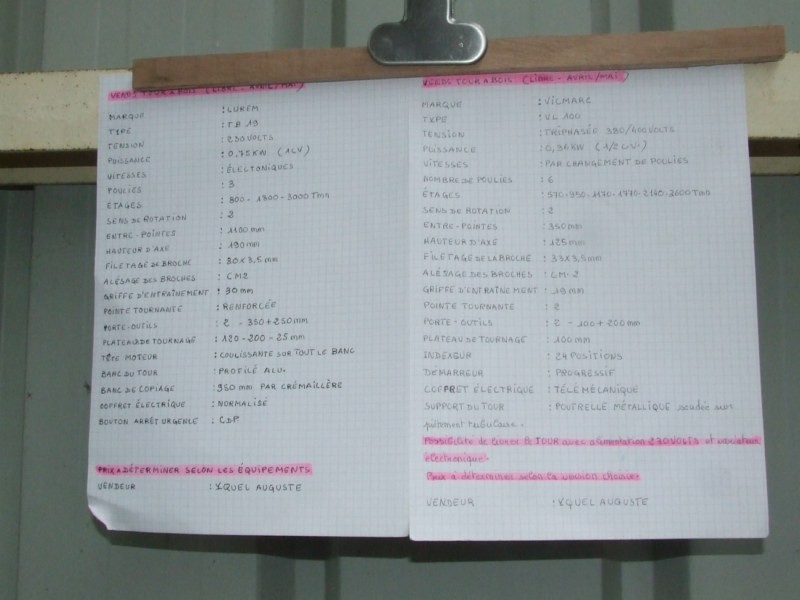 VENDS TOUR A BOIS (LIBRE - AVRIL/MAI)
MARQUE : LUREM
TYPE : TB 19
TENSION : 230 VOLTS
PUISSANCE : 0,75KW (1CV)
VITESSES : ÉLECTONIQUES
POULIES : 3
ÉTAGES : 800 - 1300 - 3000 Tmn
SENS DE ROTATION : 2
ENTRE-POINTES : 1100 mm
HAUTEUR D'AXE : 190 mm
FILETAGE DE BROCHE : 30 x 3,5 mm
ALÉSAGE DES BROCHES : CM2
GRIFFE D'ENTRAÎNEMENT : 30 mm
POINTE TOURNANTE : RENFORCÉE
PORTE-OUTILS : 2 - 350 + 250 mm
PLATEAU DE TOURNAGE : 120 - 200 - 25 mm
TÊTE MOTEUR : COULISSANTE SUR TOUT LE BANC
BANC DU TOUR : PROFILÉ ALU.
BANC DE COPIAGE : 950 mm PAR CRÉMAILLÈRE
COFFRET ÉLECTRIQUE : NORMALISÉ
BOUTON ARRÊT URGENCE :
PRIX A DÉTERMINER SELON LES ÉQUIPEMENTS
VENDEUR : YQUEL AUGUSTE
VENDS TOUR A BOIS (LIBRE - AVRIL/MAI)
MARQUE : VILMARC
TYPE : VL 100
TENSION : TRIPHASÉE 380/400 VOLTS
PUISSANCE : 0,36KW (1/2 CV)
VITESSES : PAR CHANGEMENT DE POULIES
NOMBRE DE POULIES : 6
ÉTAGES : 570 - 950 - 1170 - 1770 - 2140 - 2600 Tmn
SENS DE ROTATION : 2
ENTRE-POINTES : 350 mm
HAUTEUR D'AXE : 125 mm
FILETAGE DE LA BROCHE : 33 x 3,5 mm
ALÉSAGE DES BROCHES : CM-2
GRIFFE D'ENTRAÎNEMENT : 19 mm
POINTE TOURNANTE : 2
PORTE-OUTILS : 2 - 100 + 200 mm
PLATEAU DE TOURNAGE : 100 mm
INDEXEUR : 24 POSITIONS
DÉMARREUR : PROGRESSIF
COFFRET ÉLECTRIQUE : TÉLÉMÉCANIQUE
SUPPORT DU TOUR : POUTRELLE MÉTALLIQUE soudée sur
piètement tubulaire.
Possibilité de livrer le TOUR avec alimentation 230 VOLTS et variateur
électronique.
Prix à déterminer selon la version choisie
VENDEUR : YQUEL AUGUSTE